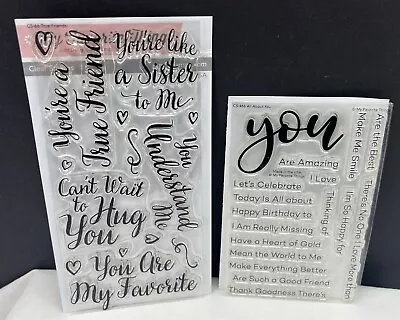 CS-66 True Friends
You're a
True Friend
You're like
a Sister
to Me
You
Understand
Me
Can't Wait
to
Hug
You
You Are
My Favorite
CS-466 All About You
© My Favorite Things
you
Made in the USA
© My Favorite Things
Are Amazing
I Love
Let's Celebrate
Today Is All about
Happy Birthday to
I Am Really Missing
Have a Heart of Gold
Mean the World to Me
Make Everything Better
Are Such a Good Friend
Thank Goodness There's
Thinking of
I'm So Happy for
There's No One I Love More than
Make Me Smile
Are the Best